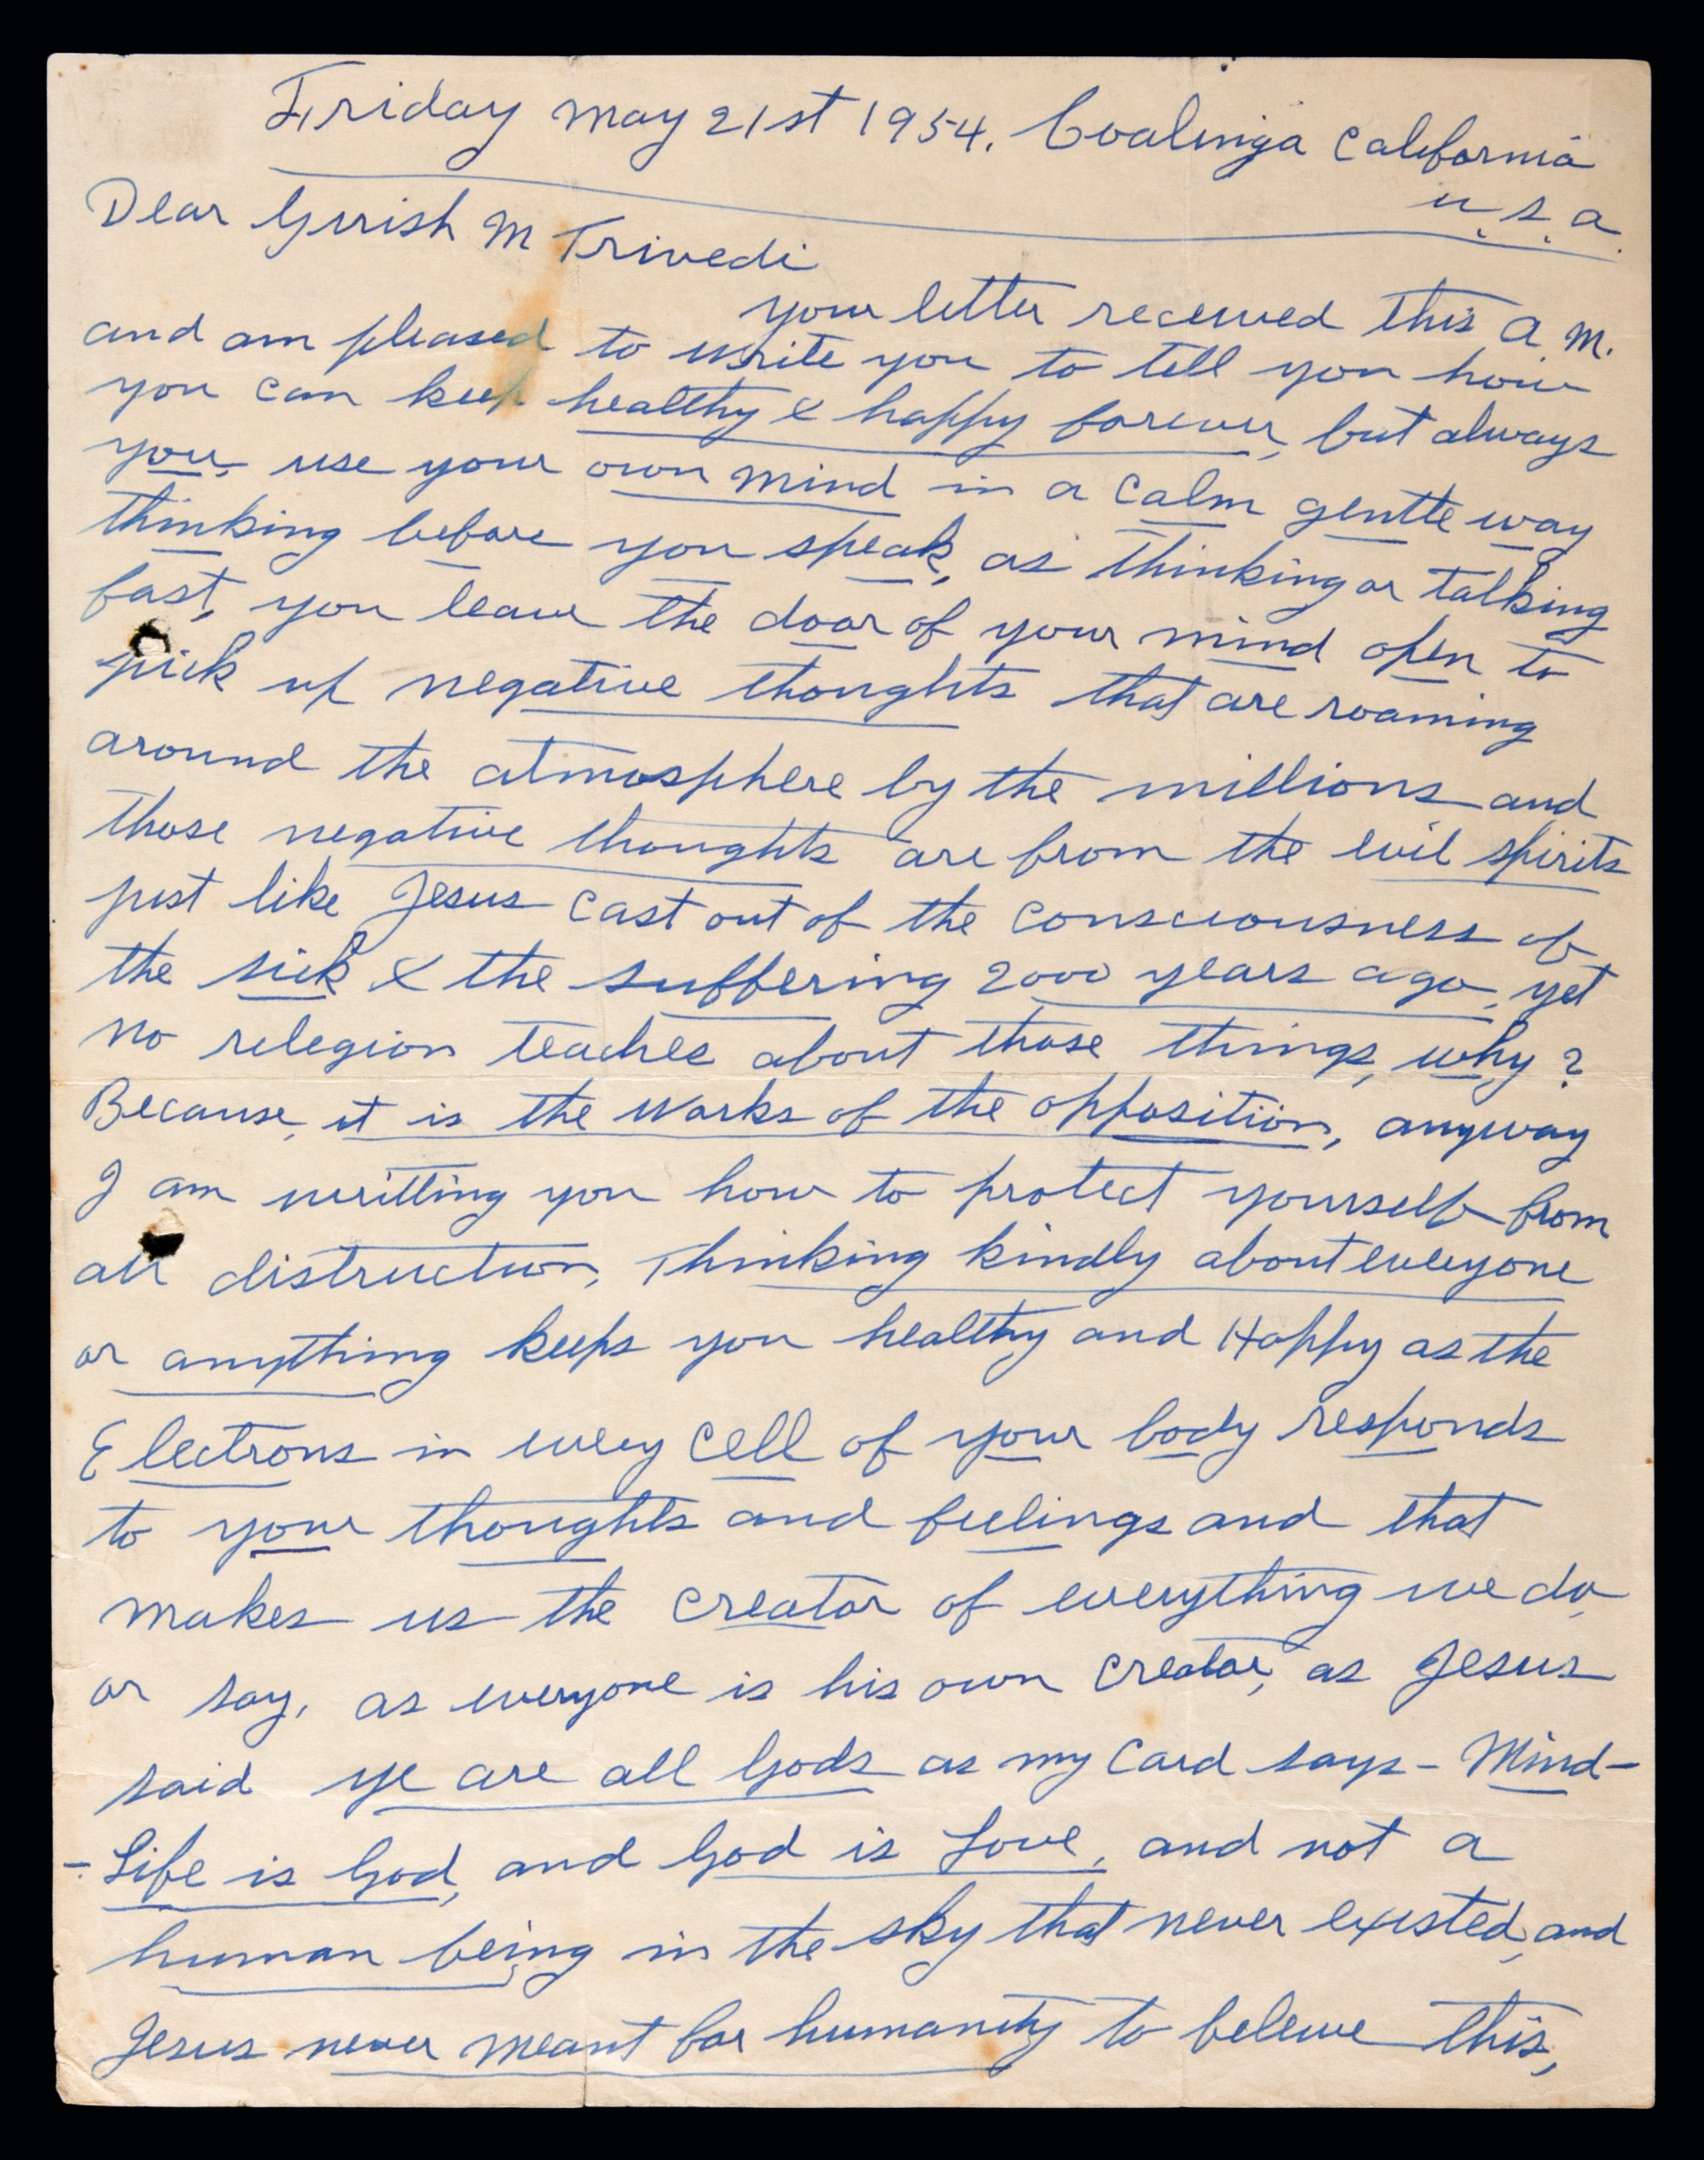 Friday May 21st 1954. Coalinga California
U.S.A.
Dear Girish M Trivedi
your letter received this A.M.
and am pleased to write you to tell you how
you can keep healthy & happy forever, but always
you, use your own mind in a calm gentle way
thinking before you speak, as thinking or talking
fast, you leave the door of your mind open to
pick up negative thoughts that are roaming
around the atmosphere by the millions and
those negative thoughts are from the evil spirits
just like Jesus cast out of the consciousness of
the sick & the suffering 2000 years ago, yet
no relegion teaches about those things, why?
Because, it is the works of the opposition, anyway
I am writting you how to protect yourself from
all distruction, Thinking kindly about everyone
or anything keeps you healthy and Happy as the
Electrons in every cell of your body responds
to your thoughts and feelings and that
makes us the creator of everything we do
or say, as everyone is his own creator, as Jesus
said ye are all Gods as my card says - Mind -
- Life is God, and God is Love, and not a
human being in the sky that never existed, and
Jesus never meant for humanity to beleive this,